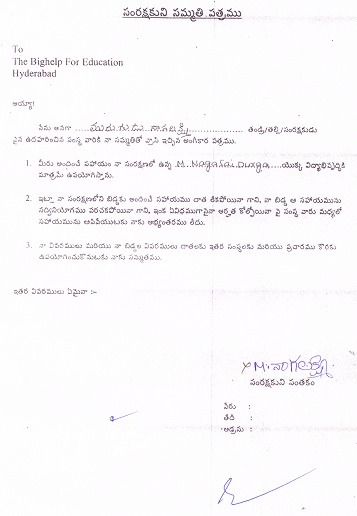 సంరక్షకుని సమ్మతి పత్రము
To
The Bighelp For Education
Hyderabad
అయ్యా!
నేను అనగా ........ తండ్రి/తల్లి/సంరక్షకుడు
పైన ఉదహరించిన సంస్థ వారికి నా సమ్మతితో వ్రాసి ఇచ్చిన అంగీకార పత్రము.
1. మీరు అందించే సహాయం నా సంరక్షణలో ఉన్న M. Naganai Durga యొక్క విద్యాభివృద్ధికి
మాత్రమే ఉపయోగిస్తాను.
2. ఇట్లా నా సంరక్షణలోని బిడ్డకు అందించే సహాయము దాత లేకపోయినా గాని, నా బిడ్డ ఆ సహాయమును
సద్వినియోగము పరచకపోయినా గాని, ఇంక ఏవిధముగానైనా అర్హత కోల్పోయినా పై సంస్థ వారు మధ్యలో
సహాయమును ఆపివేయుటకు నాకు అభ్యంతరము లేదు.
3. నా వివరములు మరియు నా బిడ్డల వివరములు దాతలకు ఇతర సంస్థలకు మరియు ప్రచారము కొరకు
ఉపయోగించుకొనుటకు నాకు సమ్మతము.
ఇతర వివరములు ఏమైనా :-
M. నాగలక్ష్మి
సంరక్షకుని సంతకం
పేరు :
తేది :
అడ్రసు :